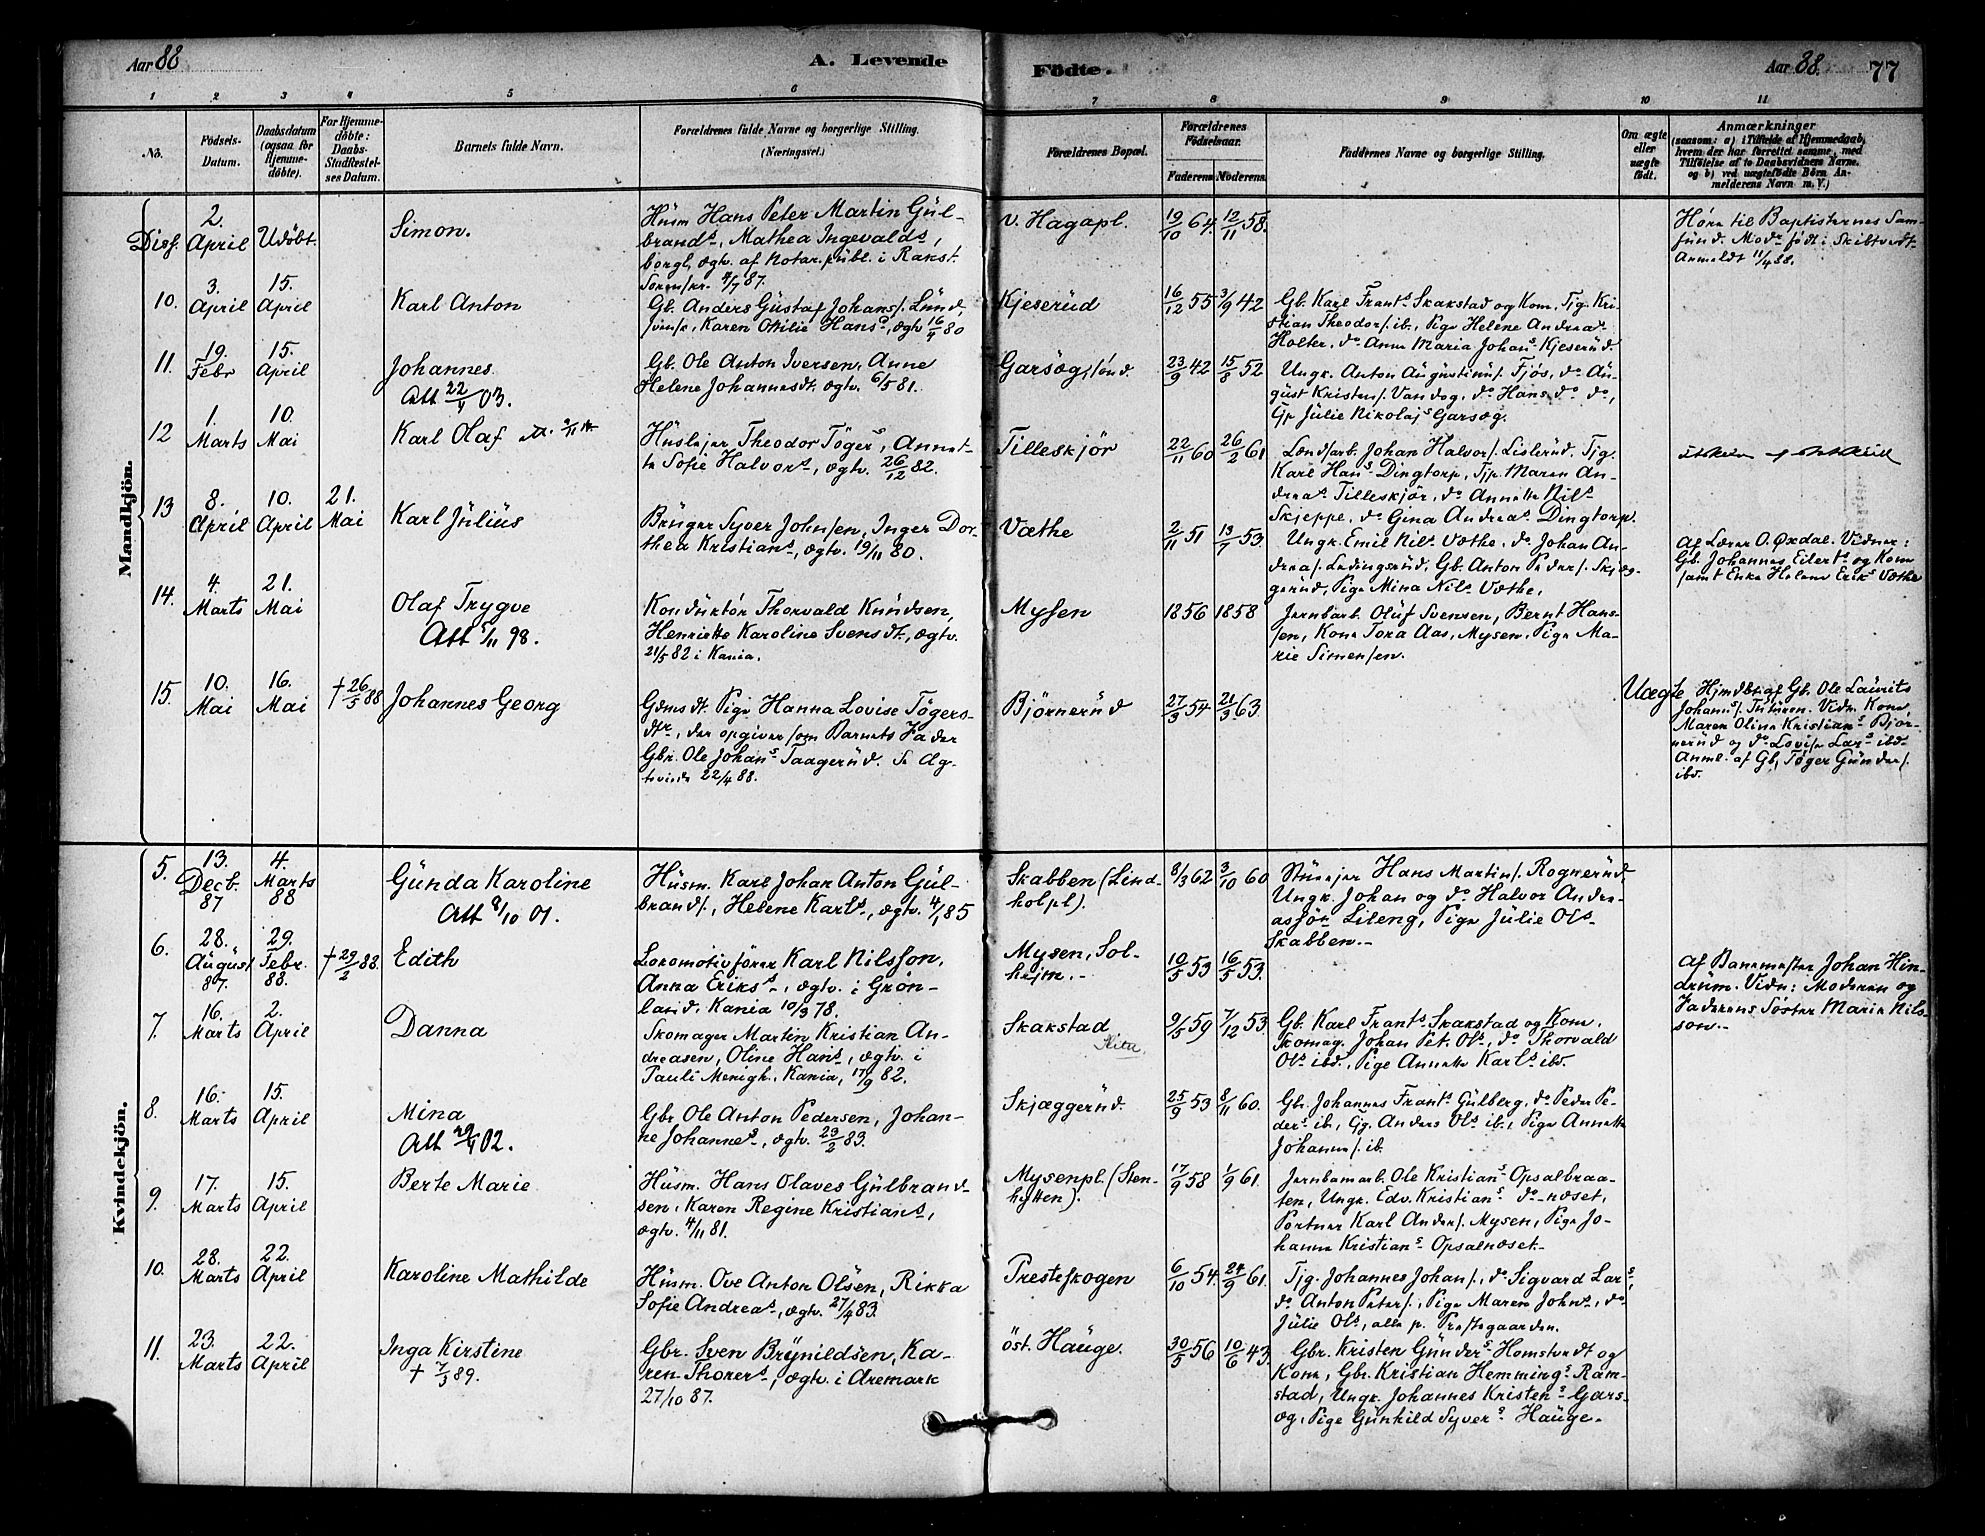 Aar 88
A. Levende
Födte.
Aar 88.
77
1 2 3 4 5 6 7 8 9 10 11
No.
Födsels-
Datum.
Daabsdatum
(ogsaa for
Hjemme-
döbte).
For Hjemme-
döbte:
Daabs-
Stadfæstel-
ses Datum.
Barnets fulde Navn.
Forældrenes fulde Navne og borgerlige Stilling.
(Næringsvei.)
Forældrenes Bopæl.
Forældrenes
Födselsaar.
Faderens Moderens
Faddernes Navne og borgerlige Stilling.
Om ægte
eller
uægte
födt.
Anmærkninger
(saasom: a) i Tilfælde af Hjemmedaab,
hvem der har forrettet samme, med
Tilföielse af to Daabsvidners Navne,
og b) ved uægtefödte Börn An-
melderens Navn m. V.)
Mandkjön.
Diss.
2.
April
Udöbt.
Simon.
Hüsm Hans Peter Martin Gül-
brands., Mathea Ingevalds,
borgl. ægtv. af Notar. publ. i Rakst.
4/7 87.
v. Hagapl.
19/10 64. 12/11 58.
Höre til Baptisternes Sam-
fünd. Modr født i Skiltvedt.
Anmeldt 11/4 88.
10.
3.
April
15.
April
Karl Anton
Gb. Anders Güstaf Johans. Lünd,
Karen Otilie Hansd, ægtv 16/4 80
Kjeserüd
16/12 55 3/9 42
Gb. Karl Frants. Skakstad og Kone, Tjg. Kri-
stian Theodors. ib., Pige Helene Andreas.
Holter, do Anne Maria Johans. Kjeserüd.
11.
19.
Febr
15.
April
Johannes
Att 22/4 03.
Gb. Ole Anton Iversen, Anne
Helene Johannesdt. ægtv. 6/5 81.
Garsög, sönd.
23/9 42 15/8 52
Ungk. Anton Augustinus. Fjös, do Aü-
güst Kristens. Vandog, do Hans do do,
Gp Jülie Nikolajs Garsög.
12
1.
Marts
10.
Mai
Karl Olaf
Hüslejer Theodor Tögers, Annet-
te Sofie Halvors., ægtv. 26/12 82.
Tilleskjör
22/11 60 26/2 61
Landarb. Johan Halvors. Lislerüd. Tjg.
Karl Hans. Dingtorp, Tjp. Maren An-
dreas. Tilleskjör, do Annette Nils.
Skjeppe, do Gina Andreas. Dingtorp.
13
8.
April
10.
April
21.
Mai
Karl Jülius
Brüger Syver Johnsen, Inger Dor-
thea Kristians., ægtv. 19/11 80.
Væthe
2/11 51 13/7 53.
Ungk. Emil Nils. Væthe, do Johan An-
dreas. Ledingsrüd, Gb. Anton Peders. Skjæg-
gerüd, Pige Mina Nils. Væthe.
Af Lærer O. Oxdal. Vidner:
Gb. Johannes Eilerts. og Kone
samt Enke Helene Eriks. Væthe
14.
4.
Marts
21.
Mai
Olaf Trygve
Att 5/11 98.
Kondüktör Thorvald Knüdsen,
Henriette Karoline Svensdt., ægtv.
21/5 82 i Kania.
Mysen
1856 1858
Jernbarb. Olüf Svensen, Bernt Hans-
sen, Kone Tora Aas, Mysen, Pige Ma-
rie Simensen.
15.
10.
Mai
16.
Mai
† 26/5 88
Johannes Georg
Gdmsdt. Pige Hanna Lovise Tögers-
dtr, der opgiver som Barnets Fader
Gbr. Ole Johans. Taagerüd. Se Æg-
teviede 22/4 88.
Björnerüd
27/3 54 21/3 63.
Uægte
Hjmdöbt af Gb. Ole Laürits
Johans. Vidn. Kone
Maren Olina Kristians. Björ-
nerüd og do Lovise Lars. ibd.
Anml. af Gb. Töger Günders.
ibd.
Kvindekjön.
5.
13.
Decb.
87
4.
Marts
88
Günda Karoline
Att 8/10 01.
Hüsm. Karl Johan Anton Gül-
brands., Helene Karls., ægtv. 4/1 85
Skabben (Lind-
holpl).
8/3 62 3/10 60
Hans Martins. Rognerüd,
Ungk. Johan og do Halvor Andre-
assjön Lileng, Pige Jülie Ols.
Skabben.-
6.
28.
Aügust
87.
29.
Febr.
88.
† 29/2 88.
Edith
Lokomotivförer Karl Nilsson,
Anna Eriks., ægtv. i Grön-
land, Kania 10/3 78.
Mysen, Sol-
hejm.-
10/5 53 16/5 53.
Af Banemester Johan Hin-
drüm. Vidn: Moderen og
Faderens Söster Maria Nils-
son.-
7.
16.
Marts
2.
April
Danna
Skomager Martin Kristian An-
dreasen, Oline Hans., ægtv. i
Pauli Menigh., Kania, 17/9 82.
Skakstad
9/5 59 7/12 53.
Gb. Karl Frants. Skakstad og Kone,
Skomag. Johan Pet. Ols., do Thorvald
Ols. ibd., Pige Annette Karls. ibd.
8.
16.
Marts
15.
April
Mina
Att 29/4 02.
Gbr. Ole Anton Pedersen, Johan-
ne Johannes., ægtv. 23/2 83.
Skjæggerüd.
25/9 53 8/11 60.
Gb. Johannes Frants. Gülberg, do Peder Pe-
ders. ib., Gg. Anders Ols. ib., Pige Annette
Johanns. ib.
9.
17.
Marts
15.
April
Berte Marie
Hüsm. Hans Olaves Gülbrand-
sen, Karen Regine Kristians.,
ægtv. 4/11 81.
Mysenpl. (Sten-
hytten).
17/9 58 1/9 61.
Jernbanearb. Ole Kristians. Opsalbraa-
ten, Ungk. Edv. Kristians. do-næset,
Portner Karl Anders. Mysen, Pige Jo-
hanne Kristians. Opsalnæset.-
10.
28.
Marts
22.
April
Karoline Mathilde
Hüsm. Ove Anton Olsen, Rikka
Sofie Andreas., ægtv. 27/4 83.
Presteskogen
6/10 54. 24/9 61.
Tjg. Johannes Johans., do Sigvard Lars.,
do Anton Peters., Pige Maren Johns., do
Jülie Ols., alle p. Præstegaarden.
11.
23.
Marts
22.
April
Inga Kirstine
† 7/3 89.
Gbr. Sven Brynildsen, Ka-
ren Thorers., ægtv. i Aremark
27/10 87.
öst. Haüge.
30/5 56 10/6 43.
Gbr. Kristen Günders. Homstvedt og
Kone, Gbr. Kristian Hemmings. Ram-
stad, Ungk. Johannes Kristens. Gars-
og, Pige Günhild Syvers. Haüge.